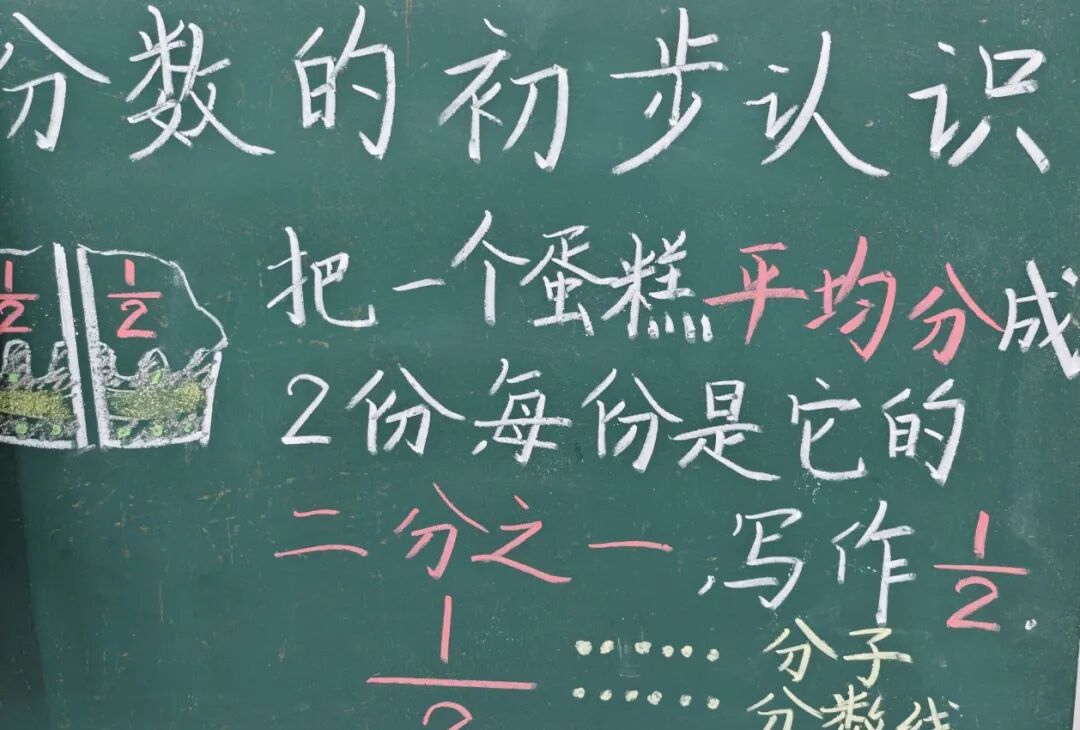 分数的初步认识
1/2 1/2
把一个蛋糕平均分成
2份,每份是它的
二分之一,写作1/2.
1 ······ 分子
— ······ 分数线
2